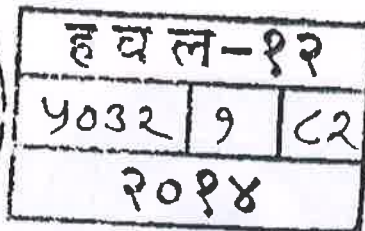 ह व ल-१२
५०३२ १ ८२
२०१४